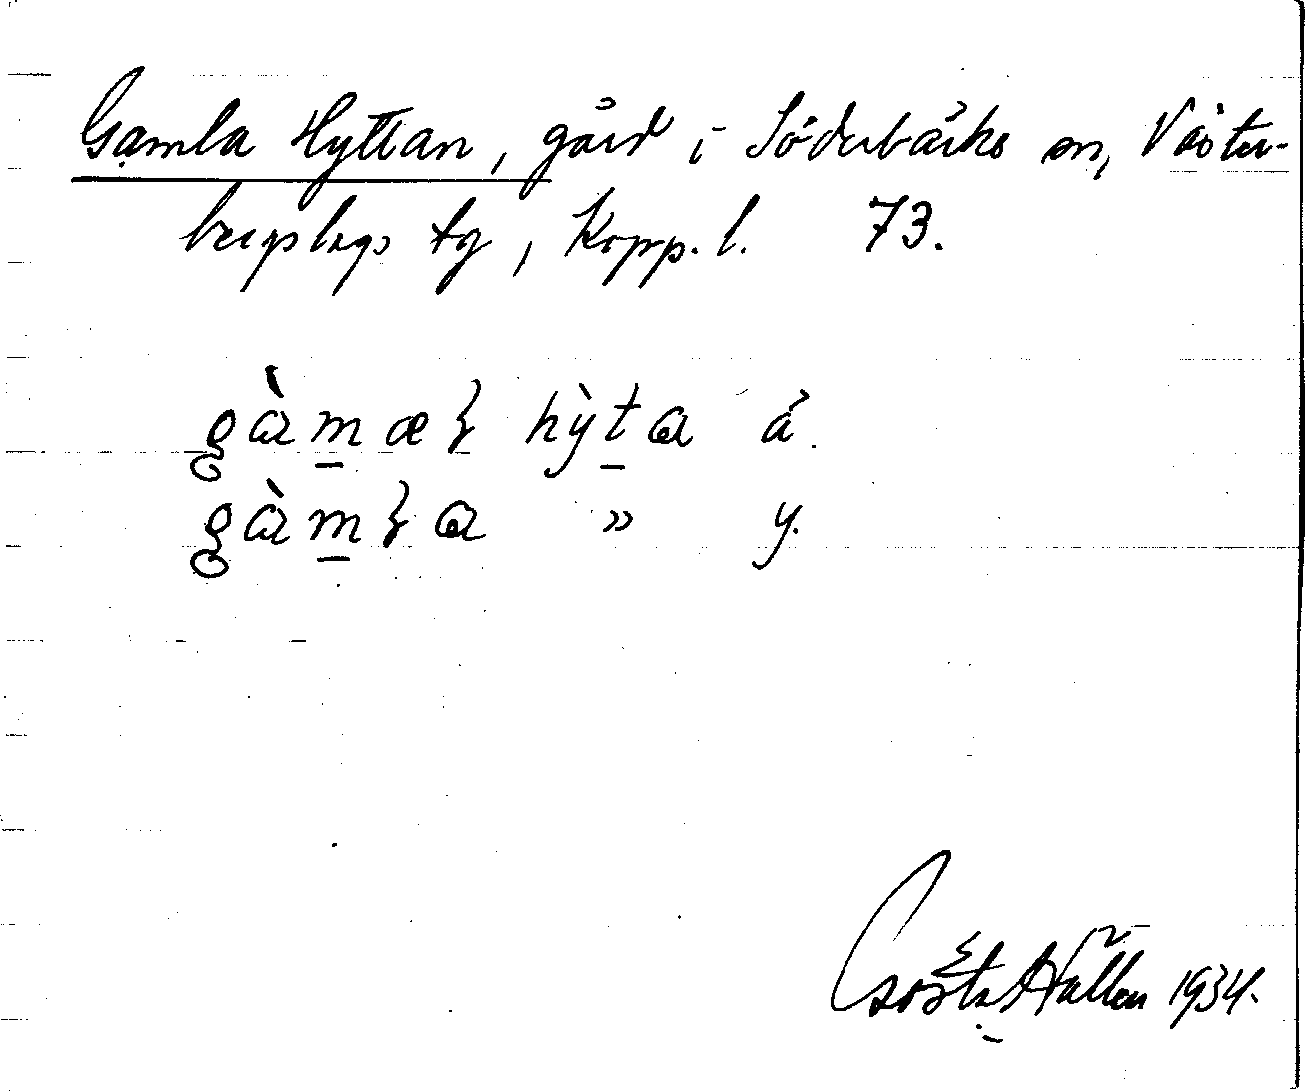 Gamla Hyttan, gård i Söderbärke sn, Väster-
bergslags tg, Kopp. l. 73.
gàmæɽ hỳta ä.
gàmɽa » y.
Gösta Hallén 1934.